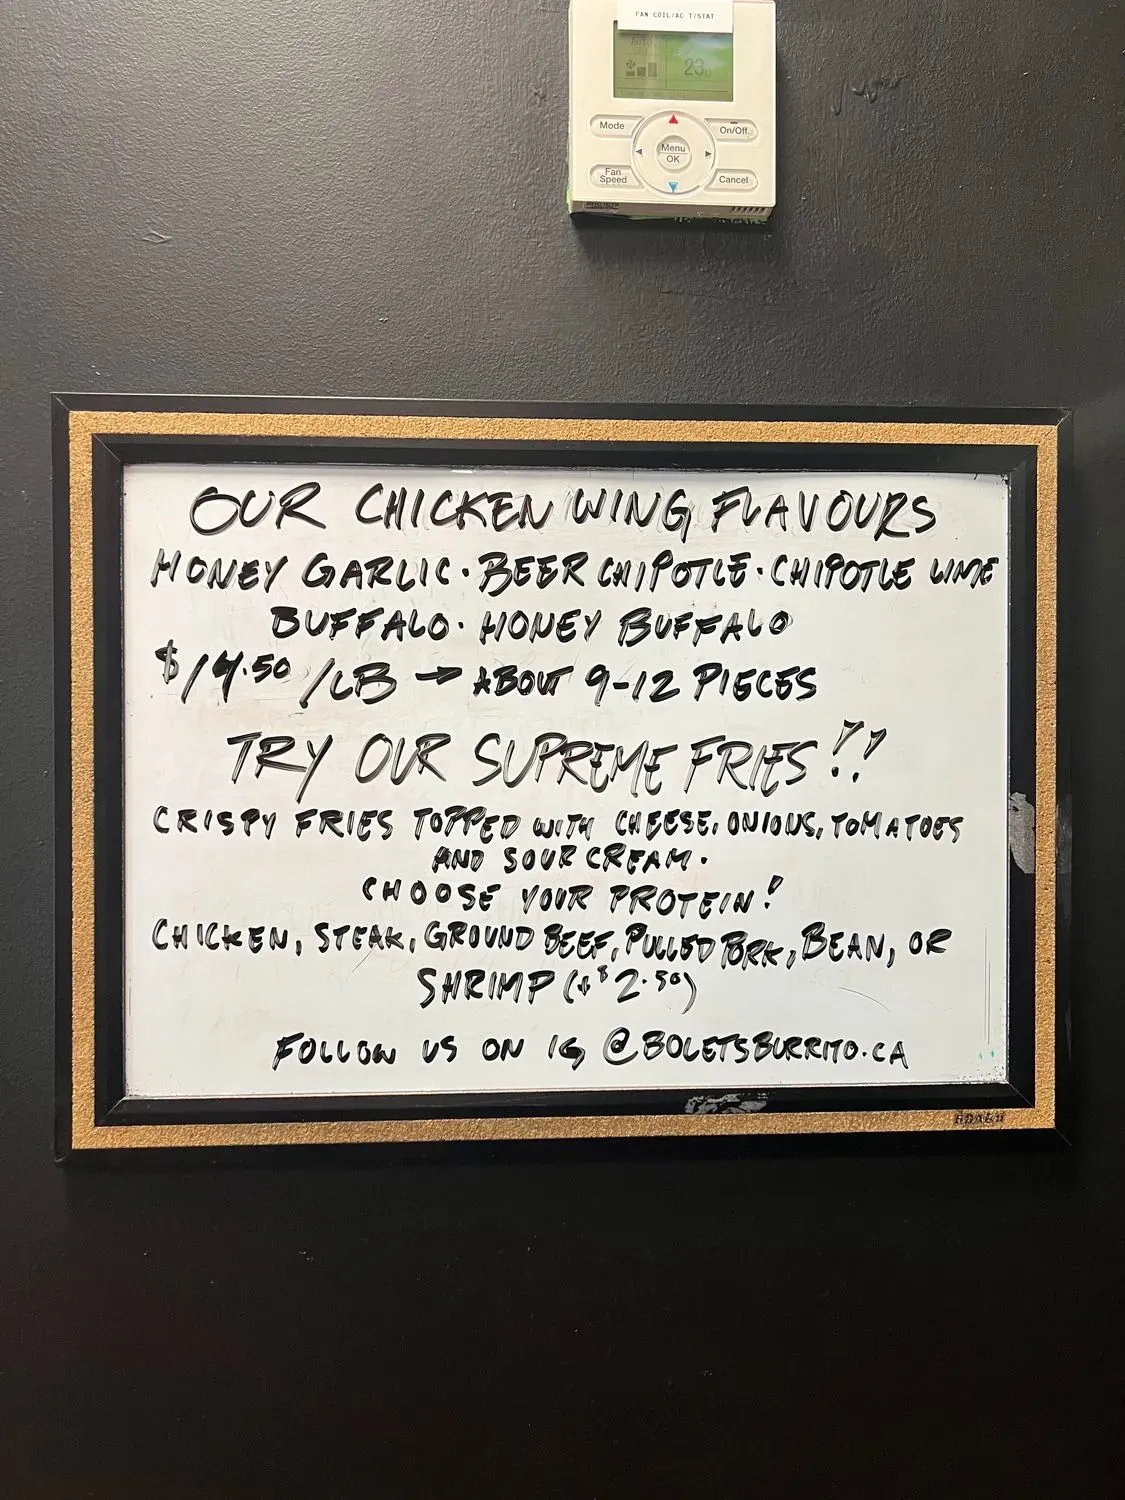 FAN COIL/AC T/STAT
Auto
23
Mode
On/Off
Menu
OK
Fan
Speed
Cancel
OUR CHICKEN WING FLAVOURS
HONEY GARLIC · BEER CHIPOTLE · CHIPOTLE LIME
BUFFALO · HONEY BUFFALO
$14.50 /LB → ABOUT 9-12 PIECES
TRY OUR SUPREME FRIES!!
CRISPY FRIES TOPPED WITH CHEESE, ONIONS, TOMATOES
AND SOUR CREAM.
CHOOSE YOUR PROTEIN!
CHICKEN, STEAK, GROUND BEEF, PULLED PORK, BEAN, OR
SHRIMP (+$2.50)
FOLLOW US ON IG @BOLETSBURRITO.CA